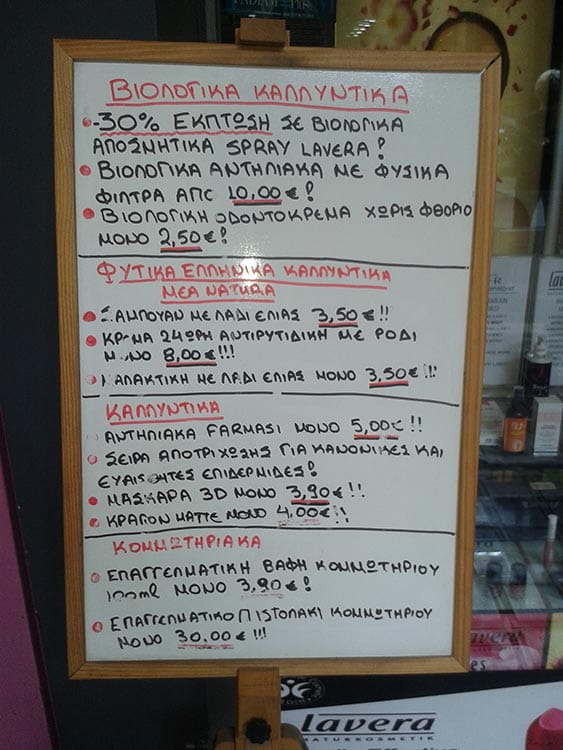 ΒΙΟΛΟΓΙΚΑ ΚΑΛΛΥΝΤΙΚΑ
-30% ΕΚΠΤΩΣΗ ΣΕ ΒΙΟΛΟΓΙΚΑ
ΑΠΟΣΜΗΤΙΚΑ SPRAY LAVERA!
ΒΙΟΛΟΓΙΚΑ ΑΝΤΗΛΙΑΚΑ ΜΕ ΦΥΣΙΚΑ
ΦΙΛΤΡΑ ΑΠΟ 10,00€!
ΒΙΟΛΟΓΙΚΗ ΟΔΟΝΤΟΚΡΕΜΑ ΧΩΡΙΣ ΦΘΟΡΙΟ
ΜΟΝΟ 2,50€!
ΦΥΤΙΚΑ ΕΛΛΗΝΙΚΑ ΚΑΛΛΥΝΤΙΚΑ
MEA NATURA
ΣΑΜΠΟΥΑΝ ΜΕ ΛΑΔΙ ΕΛΙΑΣ 3,50€!!
ΚΡΕΜΑ 24ΩΡΗ ΑΝΤΙΡΥΤΙΔΙΚΗ ΜΕ ΡΟΔΙ
ΜΟΝΟ 8,00€!!!
ΓΑΛΑΚΤΙΚΗ ΜΕ ΛΑΔΙ ΕΛΙΑΣ ΜΟΝΟ 3,50€!!
ΚΑΛΛΥΝΤΙΚΑ
ΑΝΤΗΛΙΑΚΑ FARMASI ΜΟΝΟ 5,00€!!
ΣΕΙΡΑ ΑΠΟΤΡΙΧΩΣΗΣ ΓΙΑ ΚΑΝΟΝΙΚΕΣ ΚΑΙ
ΕΥΑΙΣΘΗΤΕΣ ΕΠΙΔΕΡΜΙΔΕΣ!
ΜΑΣΚΑΡΑ 3D ΜΟΝΟ 3,90€!!
ΚΡΑΓΙΟΝ ΜΑΤΤΕ ΜΟΝΟ 4.00€!!
ΚΟΜΜΩΤΗΡΙΑΚΑ
ΕΠΑΓΓΕΛΜΑΤΙΚΗ ΒΑΦΗ ΚΟΜΜΩΤΗΡΙΟΥ
100ml ΜΟΝΟ 3,90€!
ΕΠΑΓΓΕΛΜΑΤΙΚΟ ΠΙΣΤΟΛΑΚΙ ΚΟΜΜΩΤΗΡΙΟΥ
ΜΟΝΟ 30.00€!!!
lavera
lavera
NATURKOSMETIK